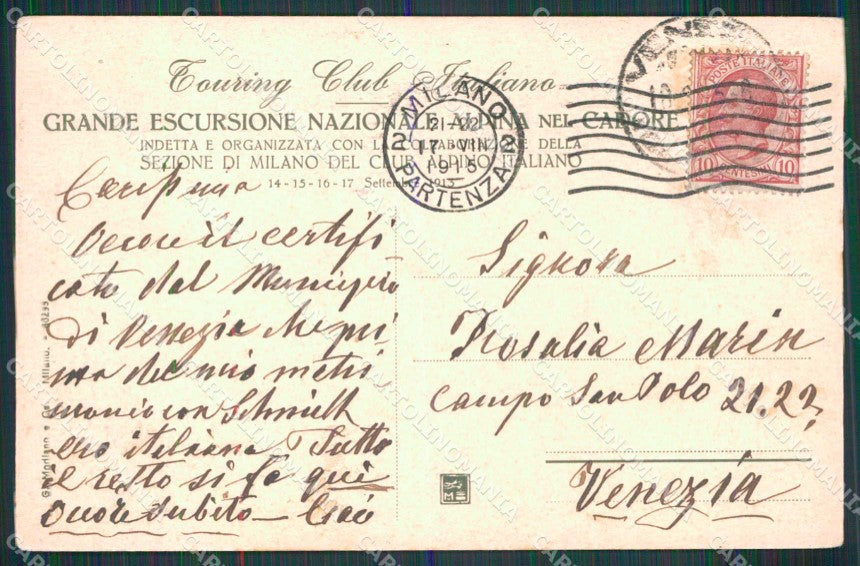 Touring Club Italiano
GRANDE ESCURSIONE NAZIONALE ALPINA NEL CADORE
INDETTA E ORGANIZZATA CON LA COLLABORAZIONE DELLA
SEZIONE DI MILANO DEL CLUB ALPINO ITALIANO
14-15-16-17 Settembre 1913
MILANO
21-22
2 17 VII 2
1915
PARTENZA
VENEZIA
POSTE ITALIANE
10 CENTESIMI 10
Carissima
Occorre il certifi
cato del Municipio
di Venezia che pri
ma del mio matri
monio con Schmidt
ero italiana Tutto
il resto si fa qui
Cuore subito - Ciao
Signora
Rosalia Marin
Campo San Polo 21.22
Venezia
G. Modiano e C. Milano.
CARTOLINOMANIA